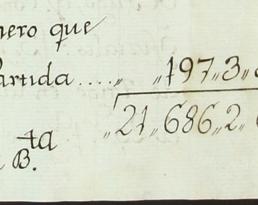 nero que
artida .... ,, ,,197,,3,,
,,21,,686,,2,,
ta
B.